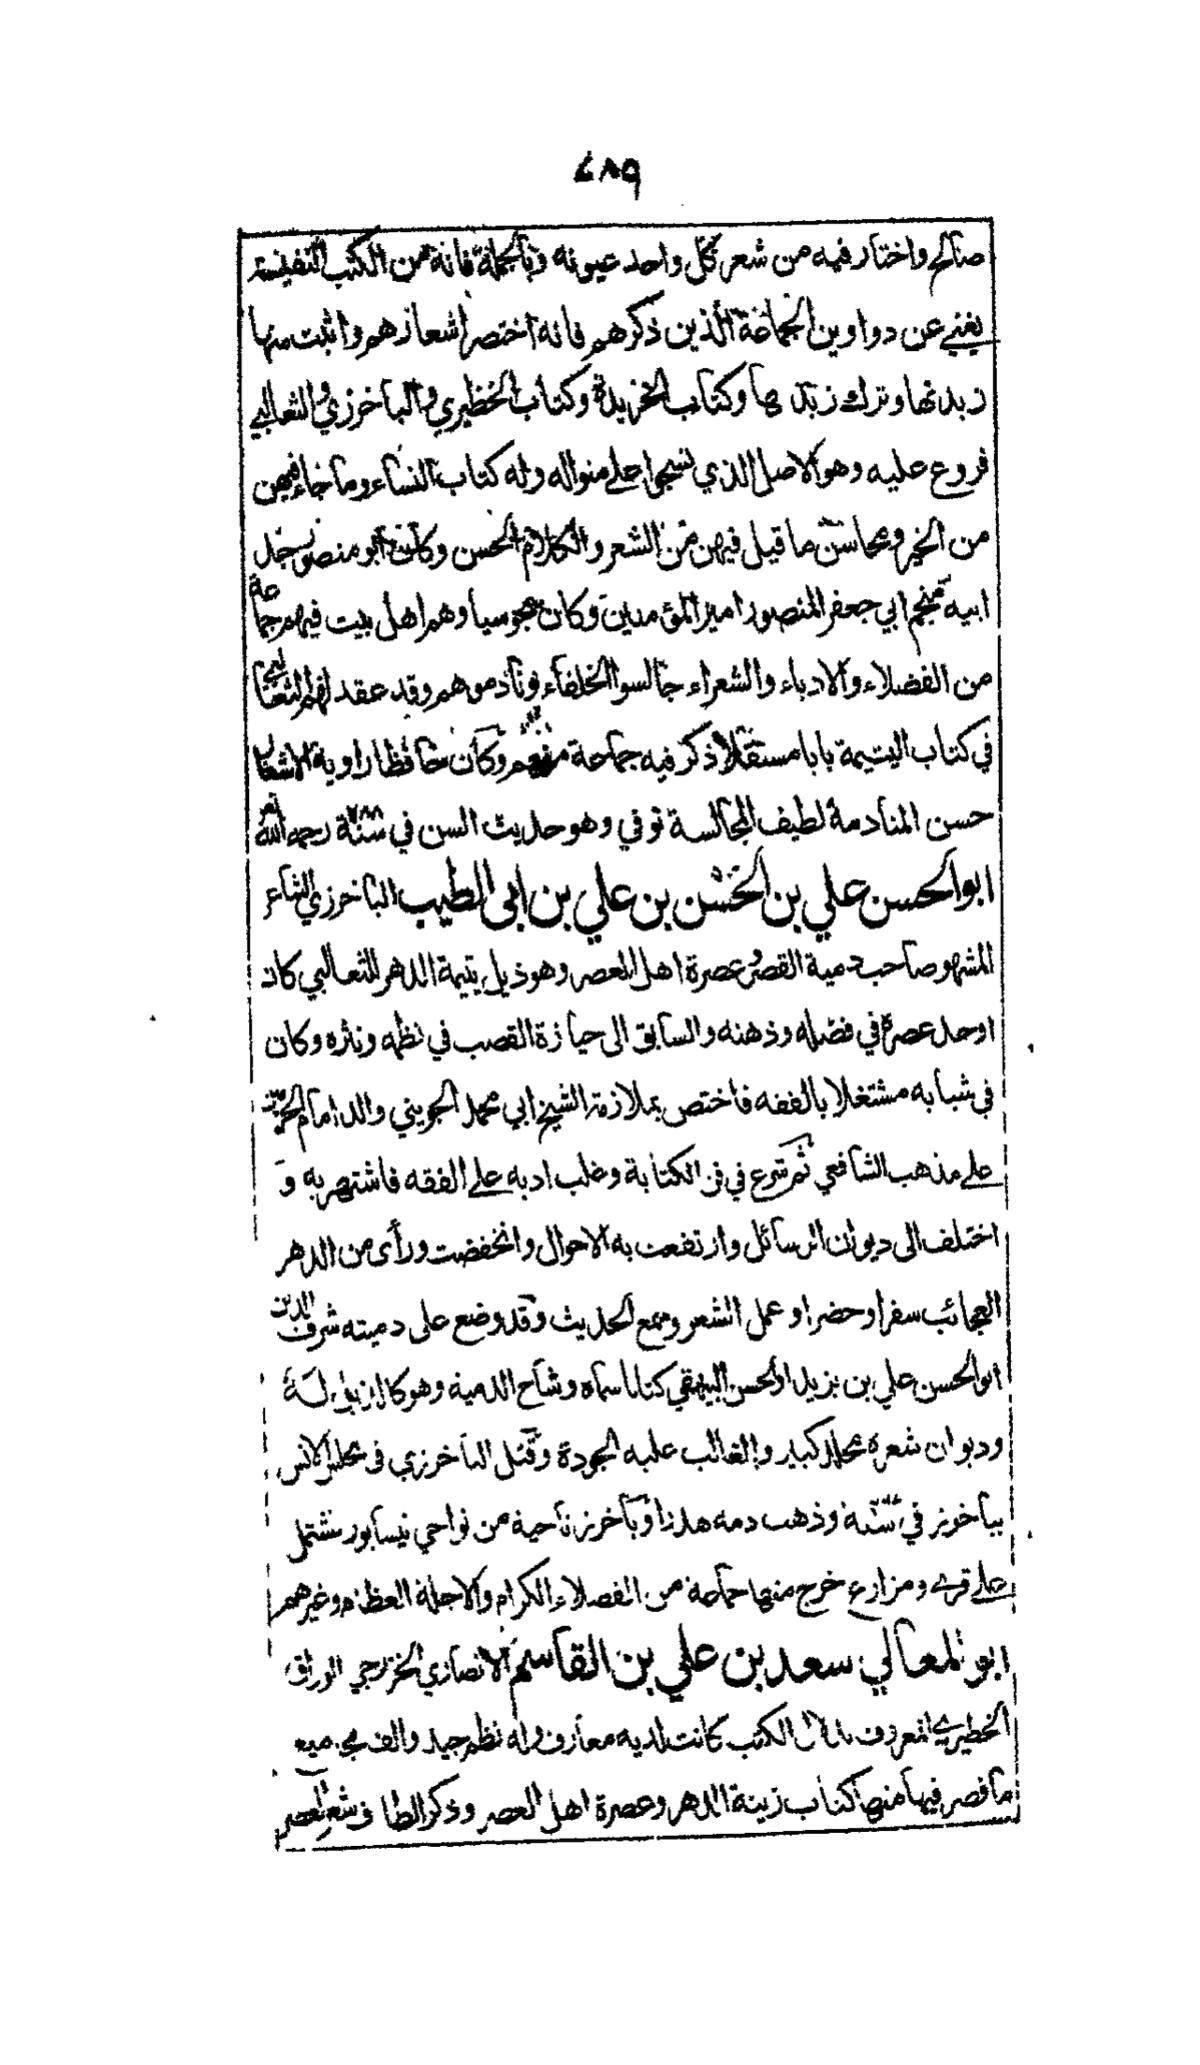 ٤٨٩
صالح واختار فيه من شعر كل واحد عيونه وبالجملة فانه من الكتب النفيسة
يغني عن دواوين الجماعة الذين ذكرهم فانه اختصر اشعارهم واثبت منها
زبدتها وترك زبدها وكتاب الخريدة وكتاب الخظيري والباخرزي والثعالبي
فروع عليه وهو الاصل الذي نسجوا على منواله وله كتاب النساء وما جاء فيهن
من الخير ومحاسن ما قيل فيهن من الشعر والكلام الحسن وكان ابو منصور جد
ابيه منجم ابي جعفر المنصور امير المؤمنين وكان مجوسيا وهم اهل بيت فيهم جماعة
من الفضلاء والادباء والشعراء جالسوا الخلفاء ونادموهم وقد عقد لهم الثعالبي
في كتاب اليتيمة بابا مستقلا ذكر فيه جماعة منهم وكان حافظا راوية الاشعار
حسن المنادمة لطيف المجالسة توفي وهو حديث السن في سنة ٢٨٨ رحمه الله
ابو الحسن علي بن الحسن بن علي بن ابي الطيب الباخرزي الشاعر
المشهو صاحب دمية القصر وعصرة اهل العصر وهو ذيل يتيمة الدهر للثعالبي كان
اوحد عصره في فضله وذهنه والسابق الى حيازة القصب في نظمه ونثره وكان
في شبابه مشتغلا بالفقه فاختص بملازمة الشيخ ابي محمد الجويني والد امام الحرمين
على مذهب الشافعي ثم شرع في فن الكتابة وغلب ادبه على الفقه فاشتهر به و
اختلف الى ديوان الرسائل وارتفعت به الاحوال وانخفضت ورأى من الدهر
العجائب سفرا وحضرا وعمل الشعر وسمع الحديث وقد وضع على دميته شرف الدين
ابو الحسن علي بن يزيد ابو الحسن البيهقي كتابا سماه وشاح الدمية وهو كالذيل له
وديوان شعره مجلد كبير والغالب عليه الجودة وقتل الباخرزي في مجلس الانس
بباخرز في سنة وذهب دمه هدرا وباخرز ناحية من نواحي نيسابور تشتمل
على قرى ومزارع خرج منها جماعة من الفضلاء الكرام والاجلة العظام وغيرهم
ابو المعالي سعد بن علي بن القاسم الانصاري الخزرجي الوراق
الخظيري المعروف بدلال الكتب كانت لديه معارف وله نظم جيد والف مجاميع
ما قصر فيها منها كتاب زينة الدهر وعصرة اهل العصر وذكر الطاف شعر العصر